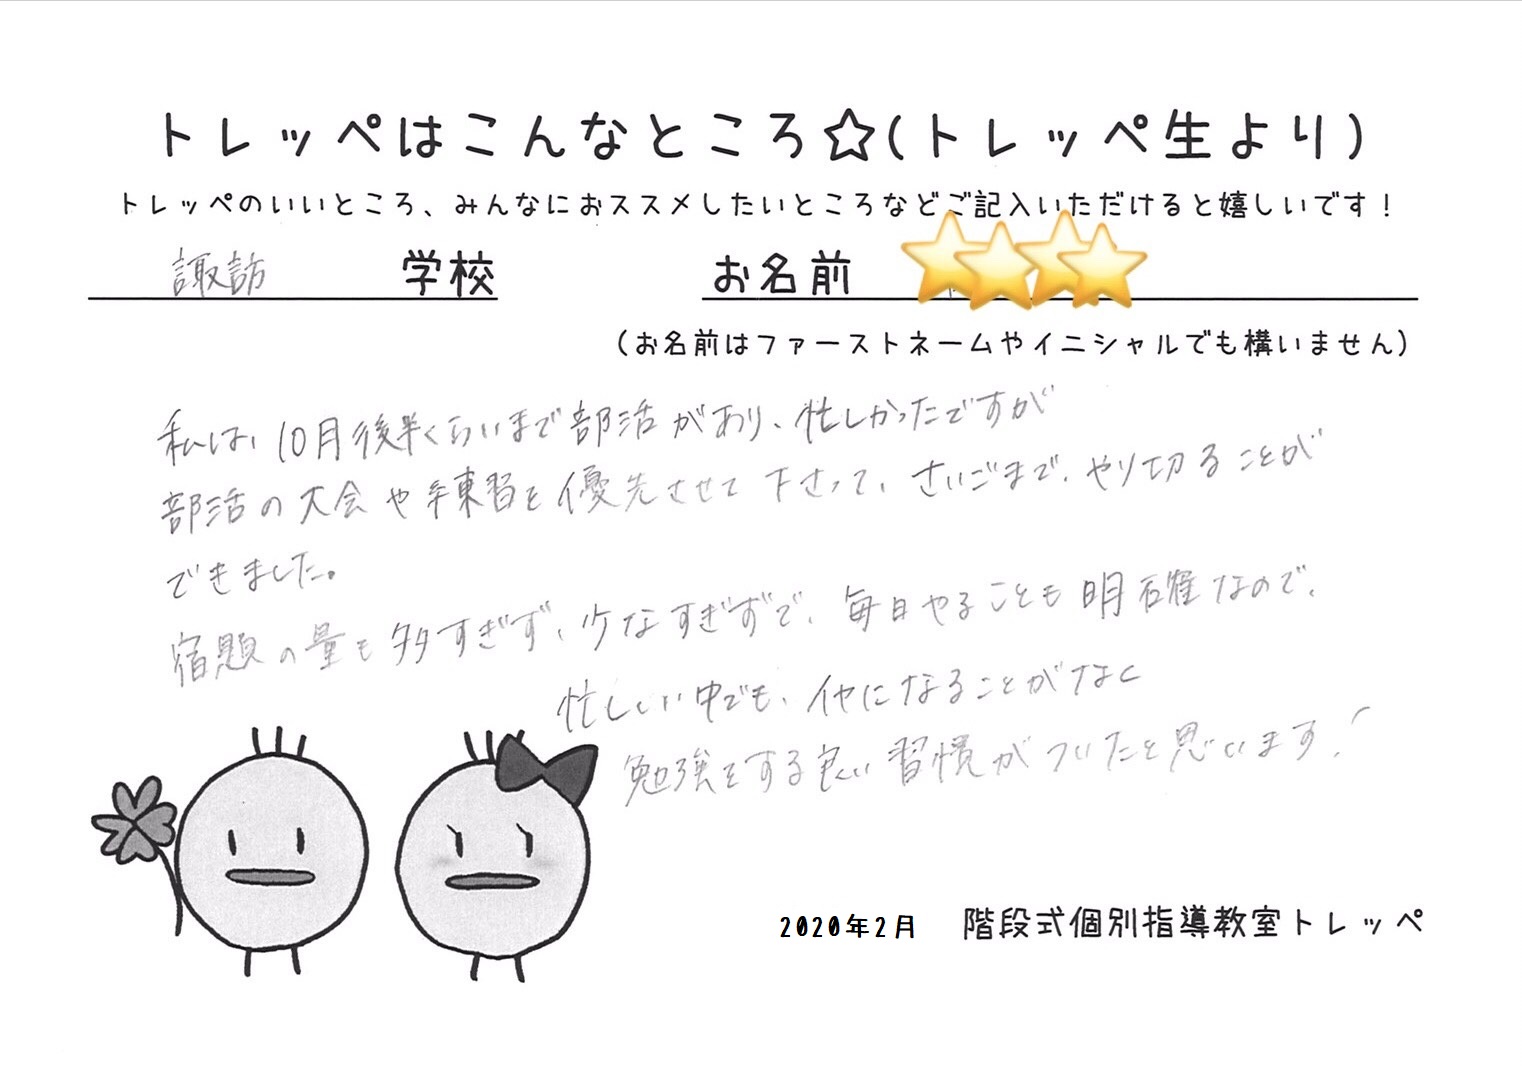 トレッペはこんなところ☆(トレッペ生より)
トレッペのいいところ、みんなにおススメしたいところなどご記入いただけると嬉しいです！
諏訪 学校 お名前
(お名前はファーストネームやイニシャルでも構いません)
私は、10月後半くらいまで部活があり、忙しかったですが
部活の大会や練習を優先させて下さって、さいごまで、やり切ることが
できました。
宿題の量も多すぎず、少なすぎずで、毎日やることも明確なので、
忙しい中でも、イヤになることがなく
勉強をする良い習慣がついたと思います！
2020年2月 階段式個別指導教室トレッペ